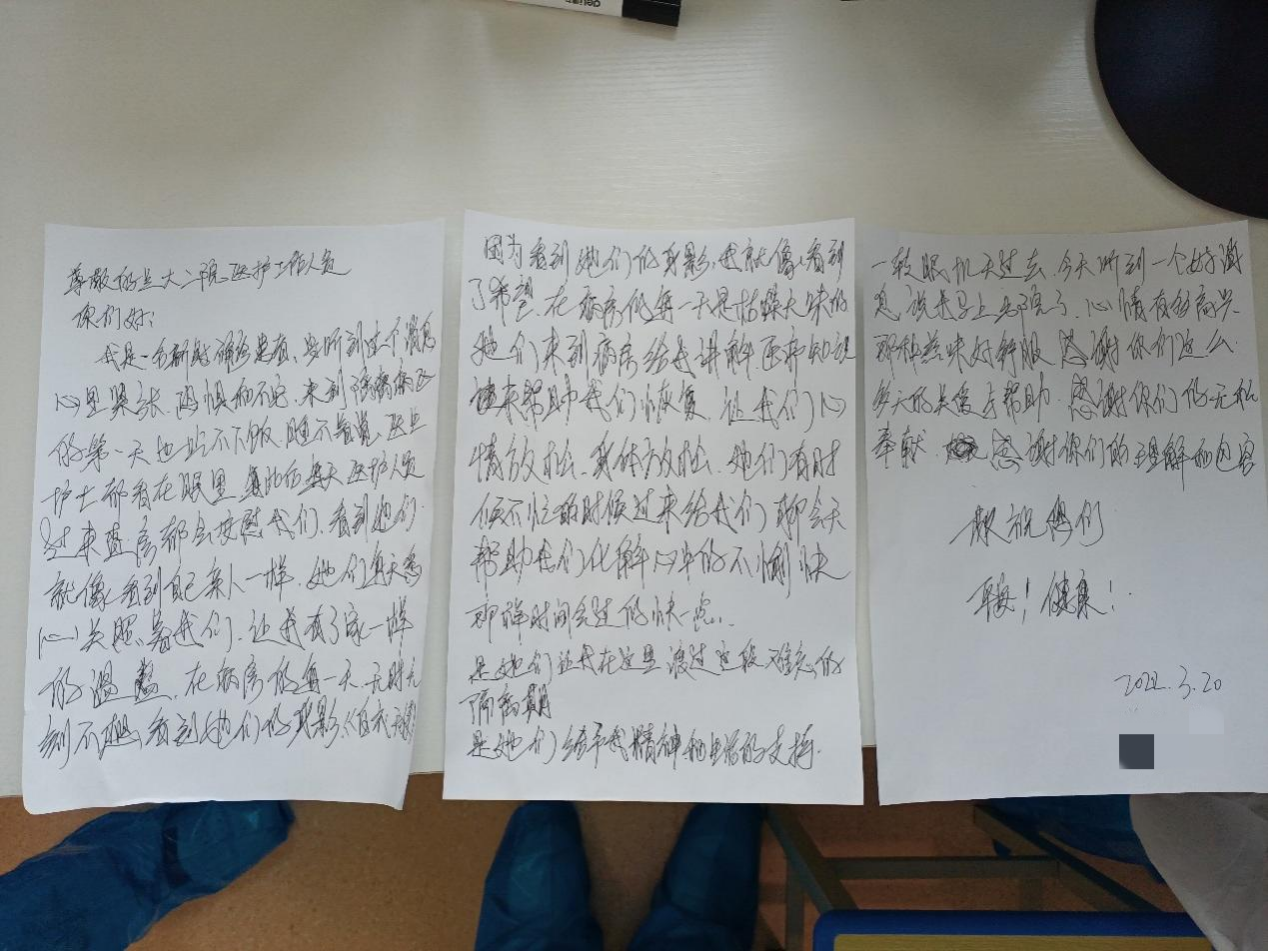 尊敬的吉大二院医护工作人员
你们好:
我是一名新冠确诊患者、当听到这个消息
心里紧张 恐惧和不安. 来到隔离病区
的第一天也吃不下饭. 睡不着觉. 医生
护士都看在眼里 每天医护人员
过来查房都会安慰我们. 看到她们.
就像看到自己亲人一样. 她们每天悉
心关照着我们. 让我有了家一样
的温暖. 在病房的每一天. 无时无
刻不在看到她们的身影.《白衣天使》
因为看到她们的身影. 我就像看到
了希望. 在病房的每一天是枯燥无味的
她们来到病房给我讲解医疗知识
来帮助我们恢复. 让我们心
情放松. 身体放松. 她们有时
候不忙的时候过来给我们聊会天
帮助我们化解心中的不愉快
那样时间会过的快一点...
是她们让我在这里渡过这段难忘的
隔离期
是她们给予我精神和生活的支持.
一转眼几天过去. 今天听到一个好消
息. 说我马上出院了. 心情有多高兴
那种滋味好舒服. 感谢你们这么
多天的关爱与帮助. 感谢你们的无私
奉献. 感谢你们的理解和包容
祝你们
平安! 健康!
2022.3.20